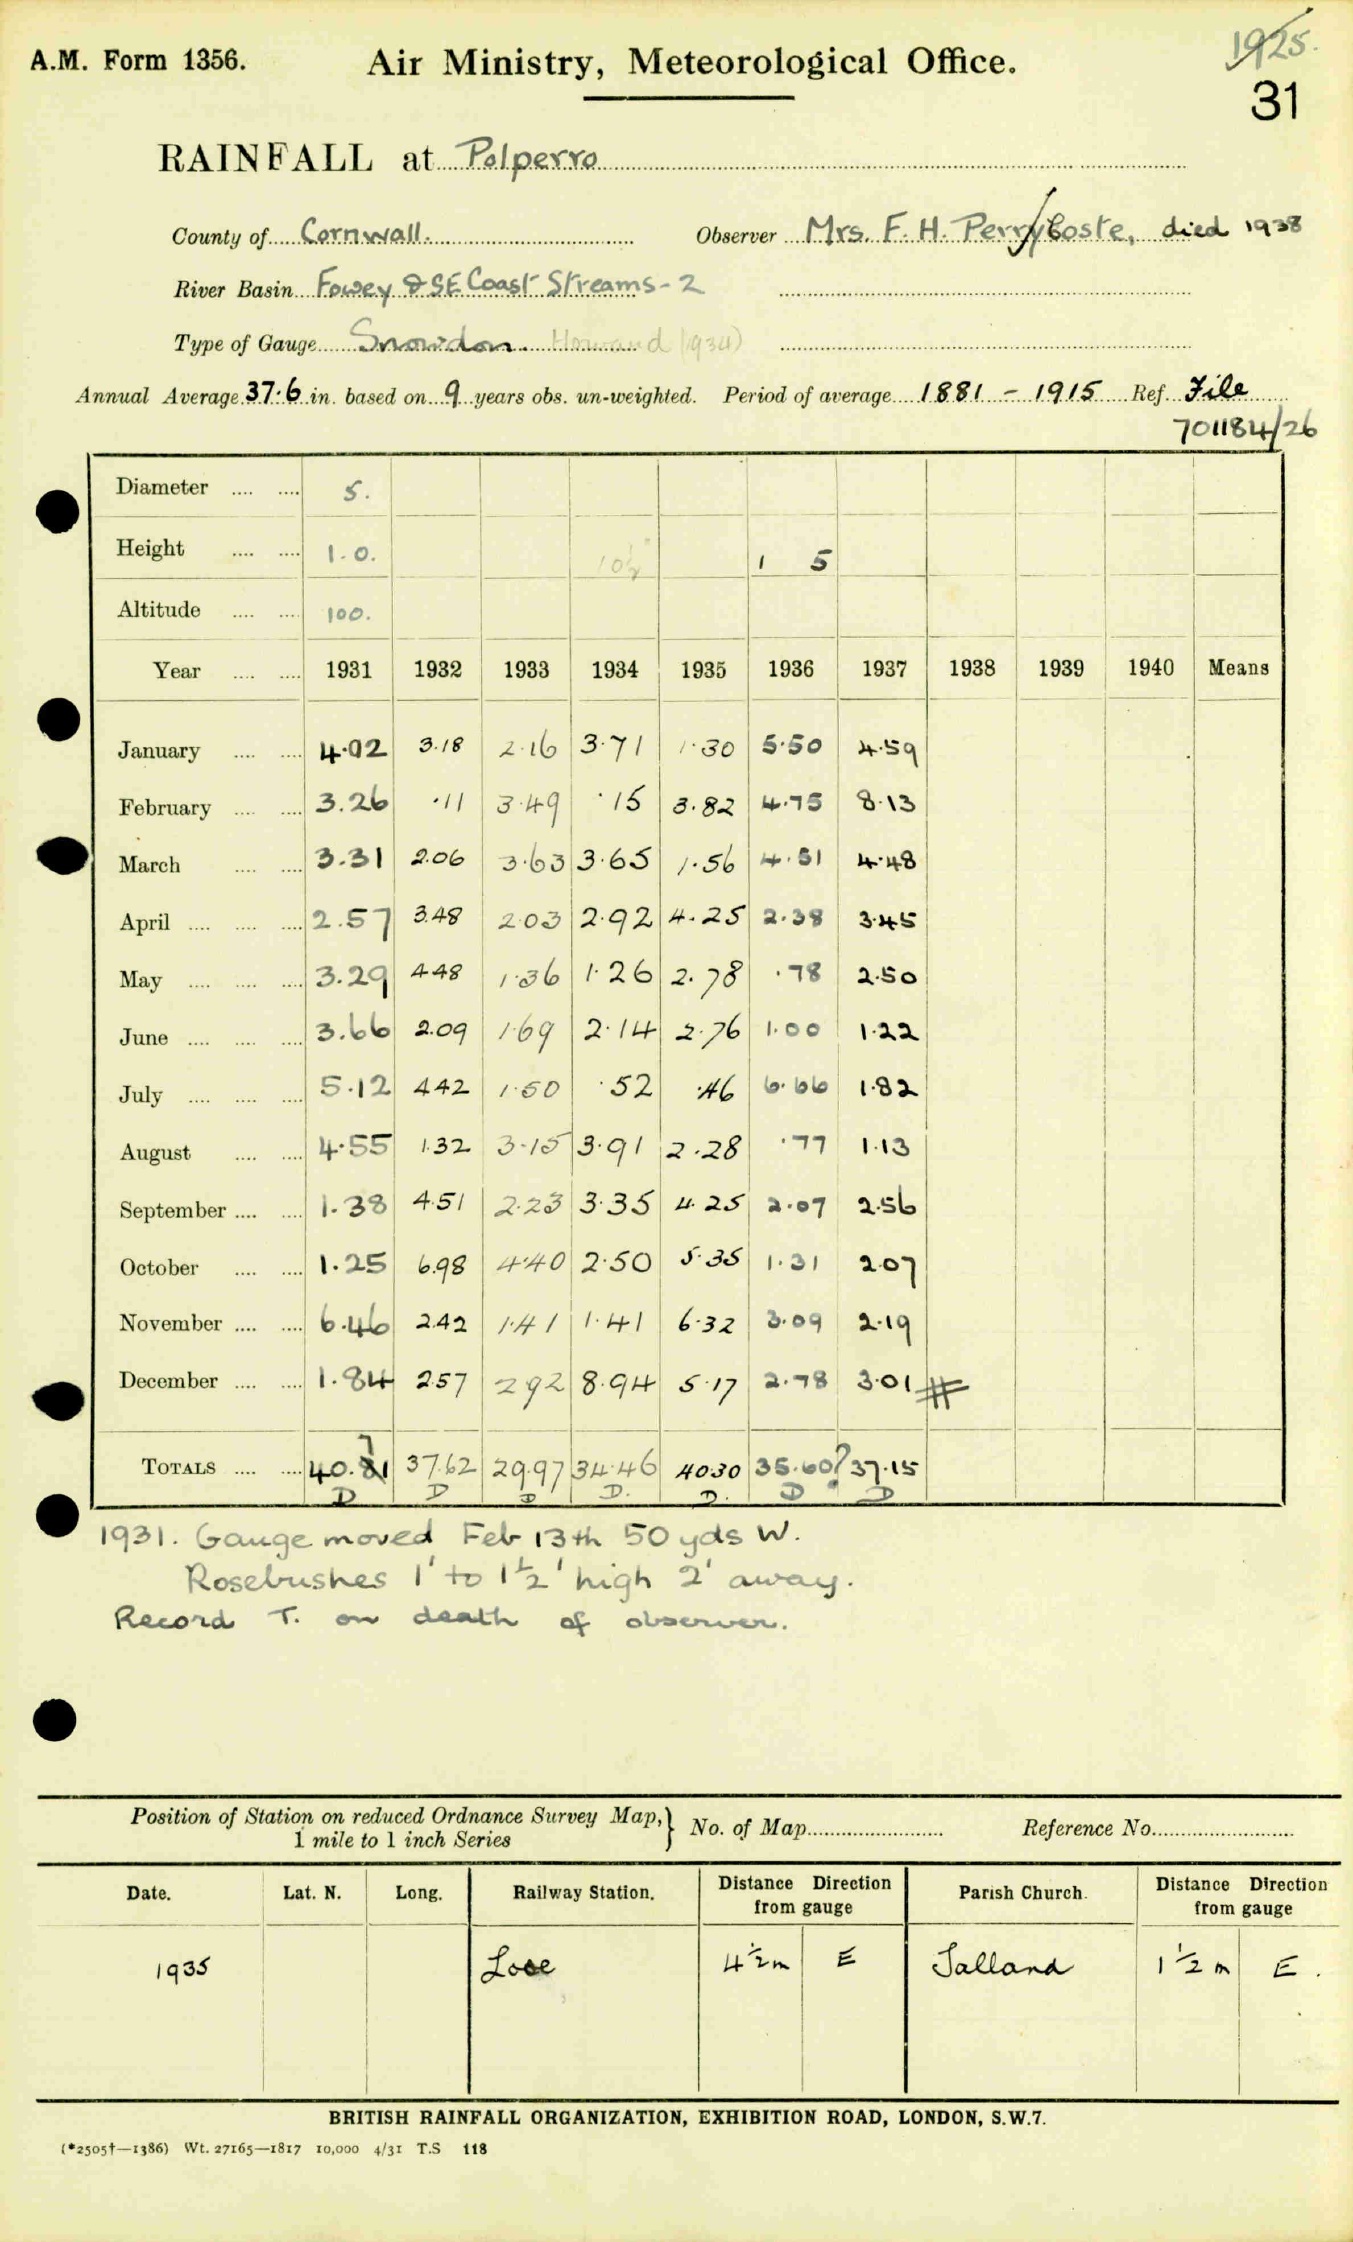 A.M. Form 1356. Air Ministry, Meteorological Office. 1925.
31
RAINFALL at Polperro
County of Cornwall. Observer Mrs. F. H. Perry/Coste, died 1938
River Basin Fowey & SE Coast Streams-2
Type of Gauge Snowdon. Howard (1934)
Annual Average 37.6 in. based on 9 years obs. un-weighted. Period of average 1881 - 1915 Ref. File
701184/26
Diameter .... .... 5.
Height .... .... 1.0. 10½" 1 5
Altitude .... .... 100.
Year .... .... 1931 1932 1933 1934 1935 1936 1937 1938 1939 1940 Means
January .... .... 4.02 3.18 2.16 3.71 1.30 5.50 4.59
February .... .... 3.26 .11 3.49 .15 3.82 4.75 8.13
March .... .... 3.31 2.06 3.63 3.65 1.56 4.51 4.48
April .... .... .... 2.57 3.48 2.03 2.92 4.25 2.38 3.45
May .... .... .... 3.29 4.48 1.36 1.26 2.78 .78 2.50
June .... .... .... 3.66 2.09 1.69 2.14 2.76 1.00 1.22
July .... .... .... 5.12 4.42 1.50 .52 .46 6.66 1.82
August .... .... 4.55 1.32 3.15 3.91 2.28 .77 1.13
September .... .... 1.38 4.51 2.23 3.35 4.25 2.07 2.56
October .... .... 1.25 6.98 4.40 2.50 5.35 1.31 2.07
November .... .... 6.46 2.42 1.41 1.41 6.32 3.09 2.19
December .... .... 1.84 2.57 2.92 8.94 5.17 2.78 3.01 #
7
TOTALS .... .... 40.81 37.62 29.97 34.46 40.30 35.60? 37.15
D D D D. D. D D
1931. Gauge moved Feb 13th 50 yds W.
Rosebushes 1' to 1½' high 2' away.
Record T. on death of observer.
Position of Station on reduced Ordnance Survey Map,
1 mile to 1 inch Series } No. of Map Reference No.
Date. Lat. N. Long. Railway Station. Distance Direction from gauge Parish Church. Distance Direction from gauge
1935 Looe 4½m E Talland 1½m E.
BRITISH RAINFALL ORGANIZATION, EXHIBITION ROAD, LONDON, S.W.7.
(*2505†—1386) Wt. 27165—1817 10,000 4/31 T.S 118